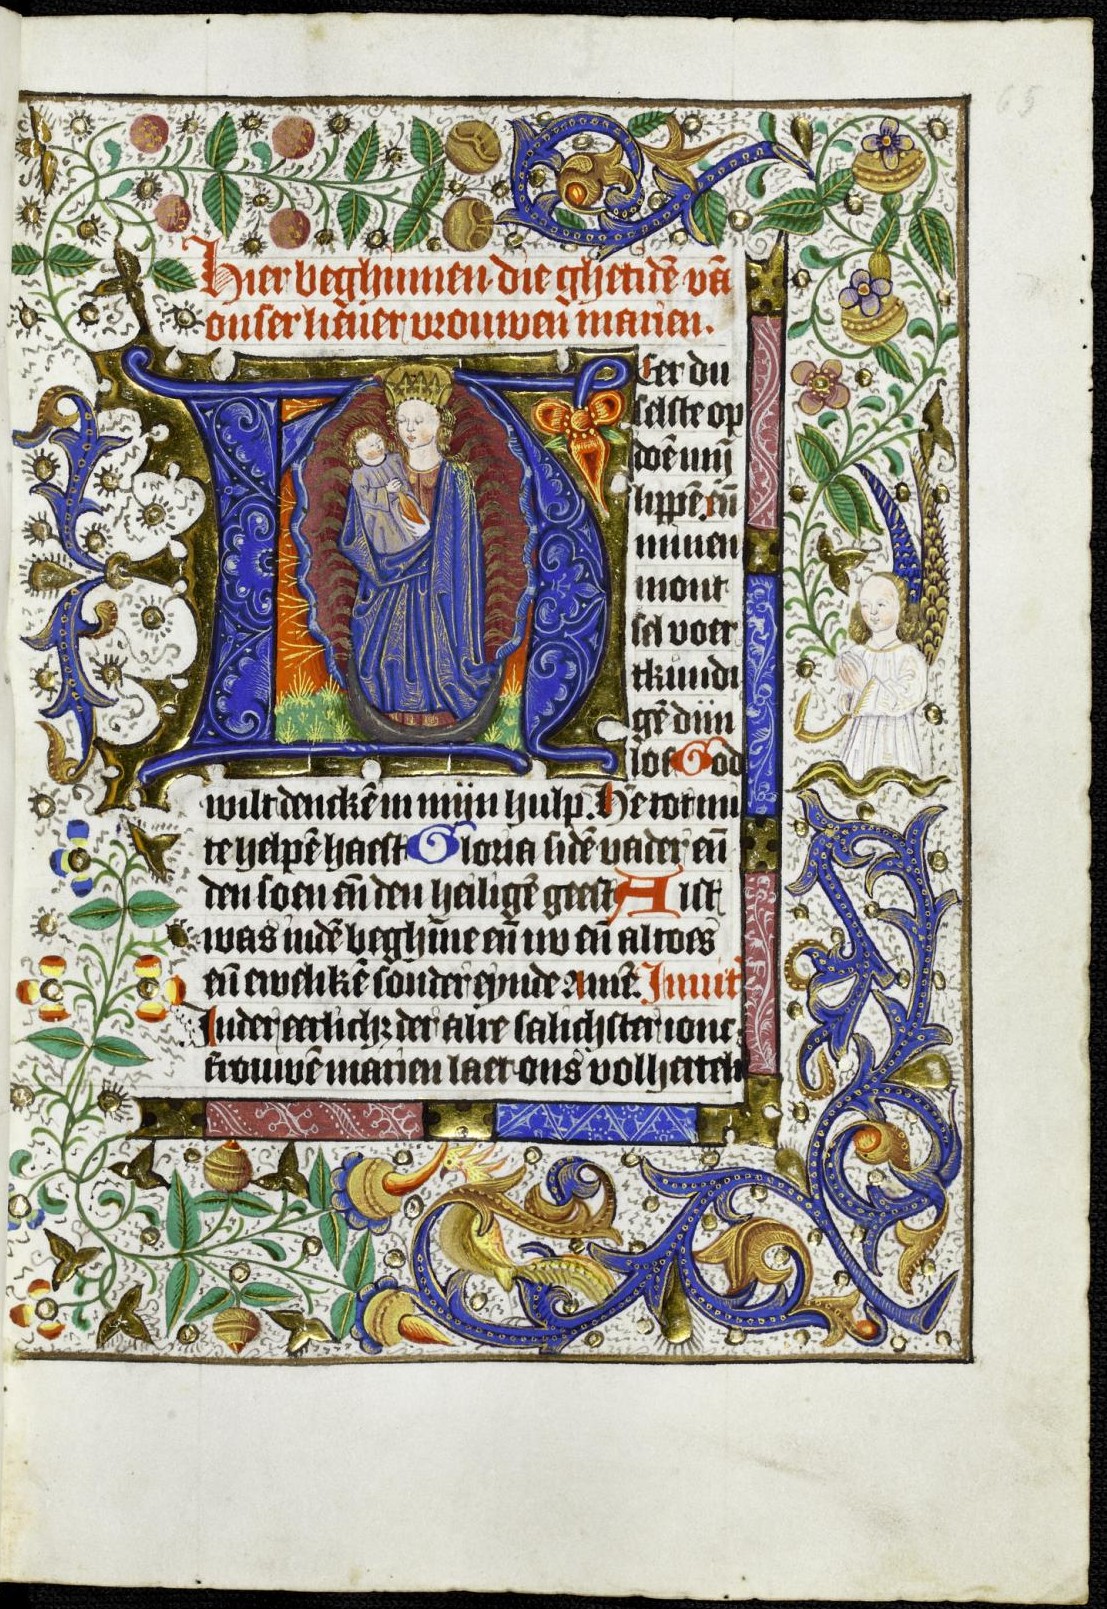 65
Hier beghinnen die ghetidē vā
onser lieuer vrouwen marien.
Heer du
selste op
doē mij
lippē. eñ
minen
mont
sel voer
tkundi
gē dijn
lof God
wilt dencke͞ in mijn hulp. He͞re tot mi
te helpē haest Gloria si de͞ vader eñ
den soen eñ den heiligē geest Als t
was inde͞ beghi͞ne eñ nv eñ altoes
eñ eweliken͞ sonder eynde Ame͞. Inuit͞
In der eerlich; der alre salichster ionc
frouwē marien laet ons volherteli